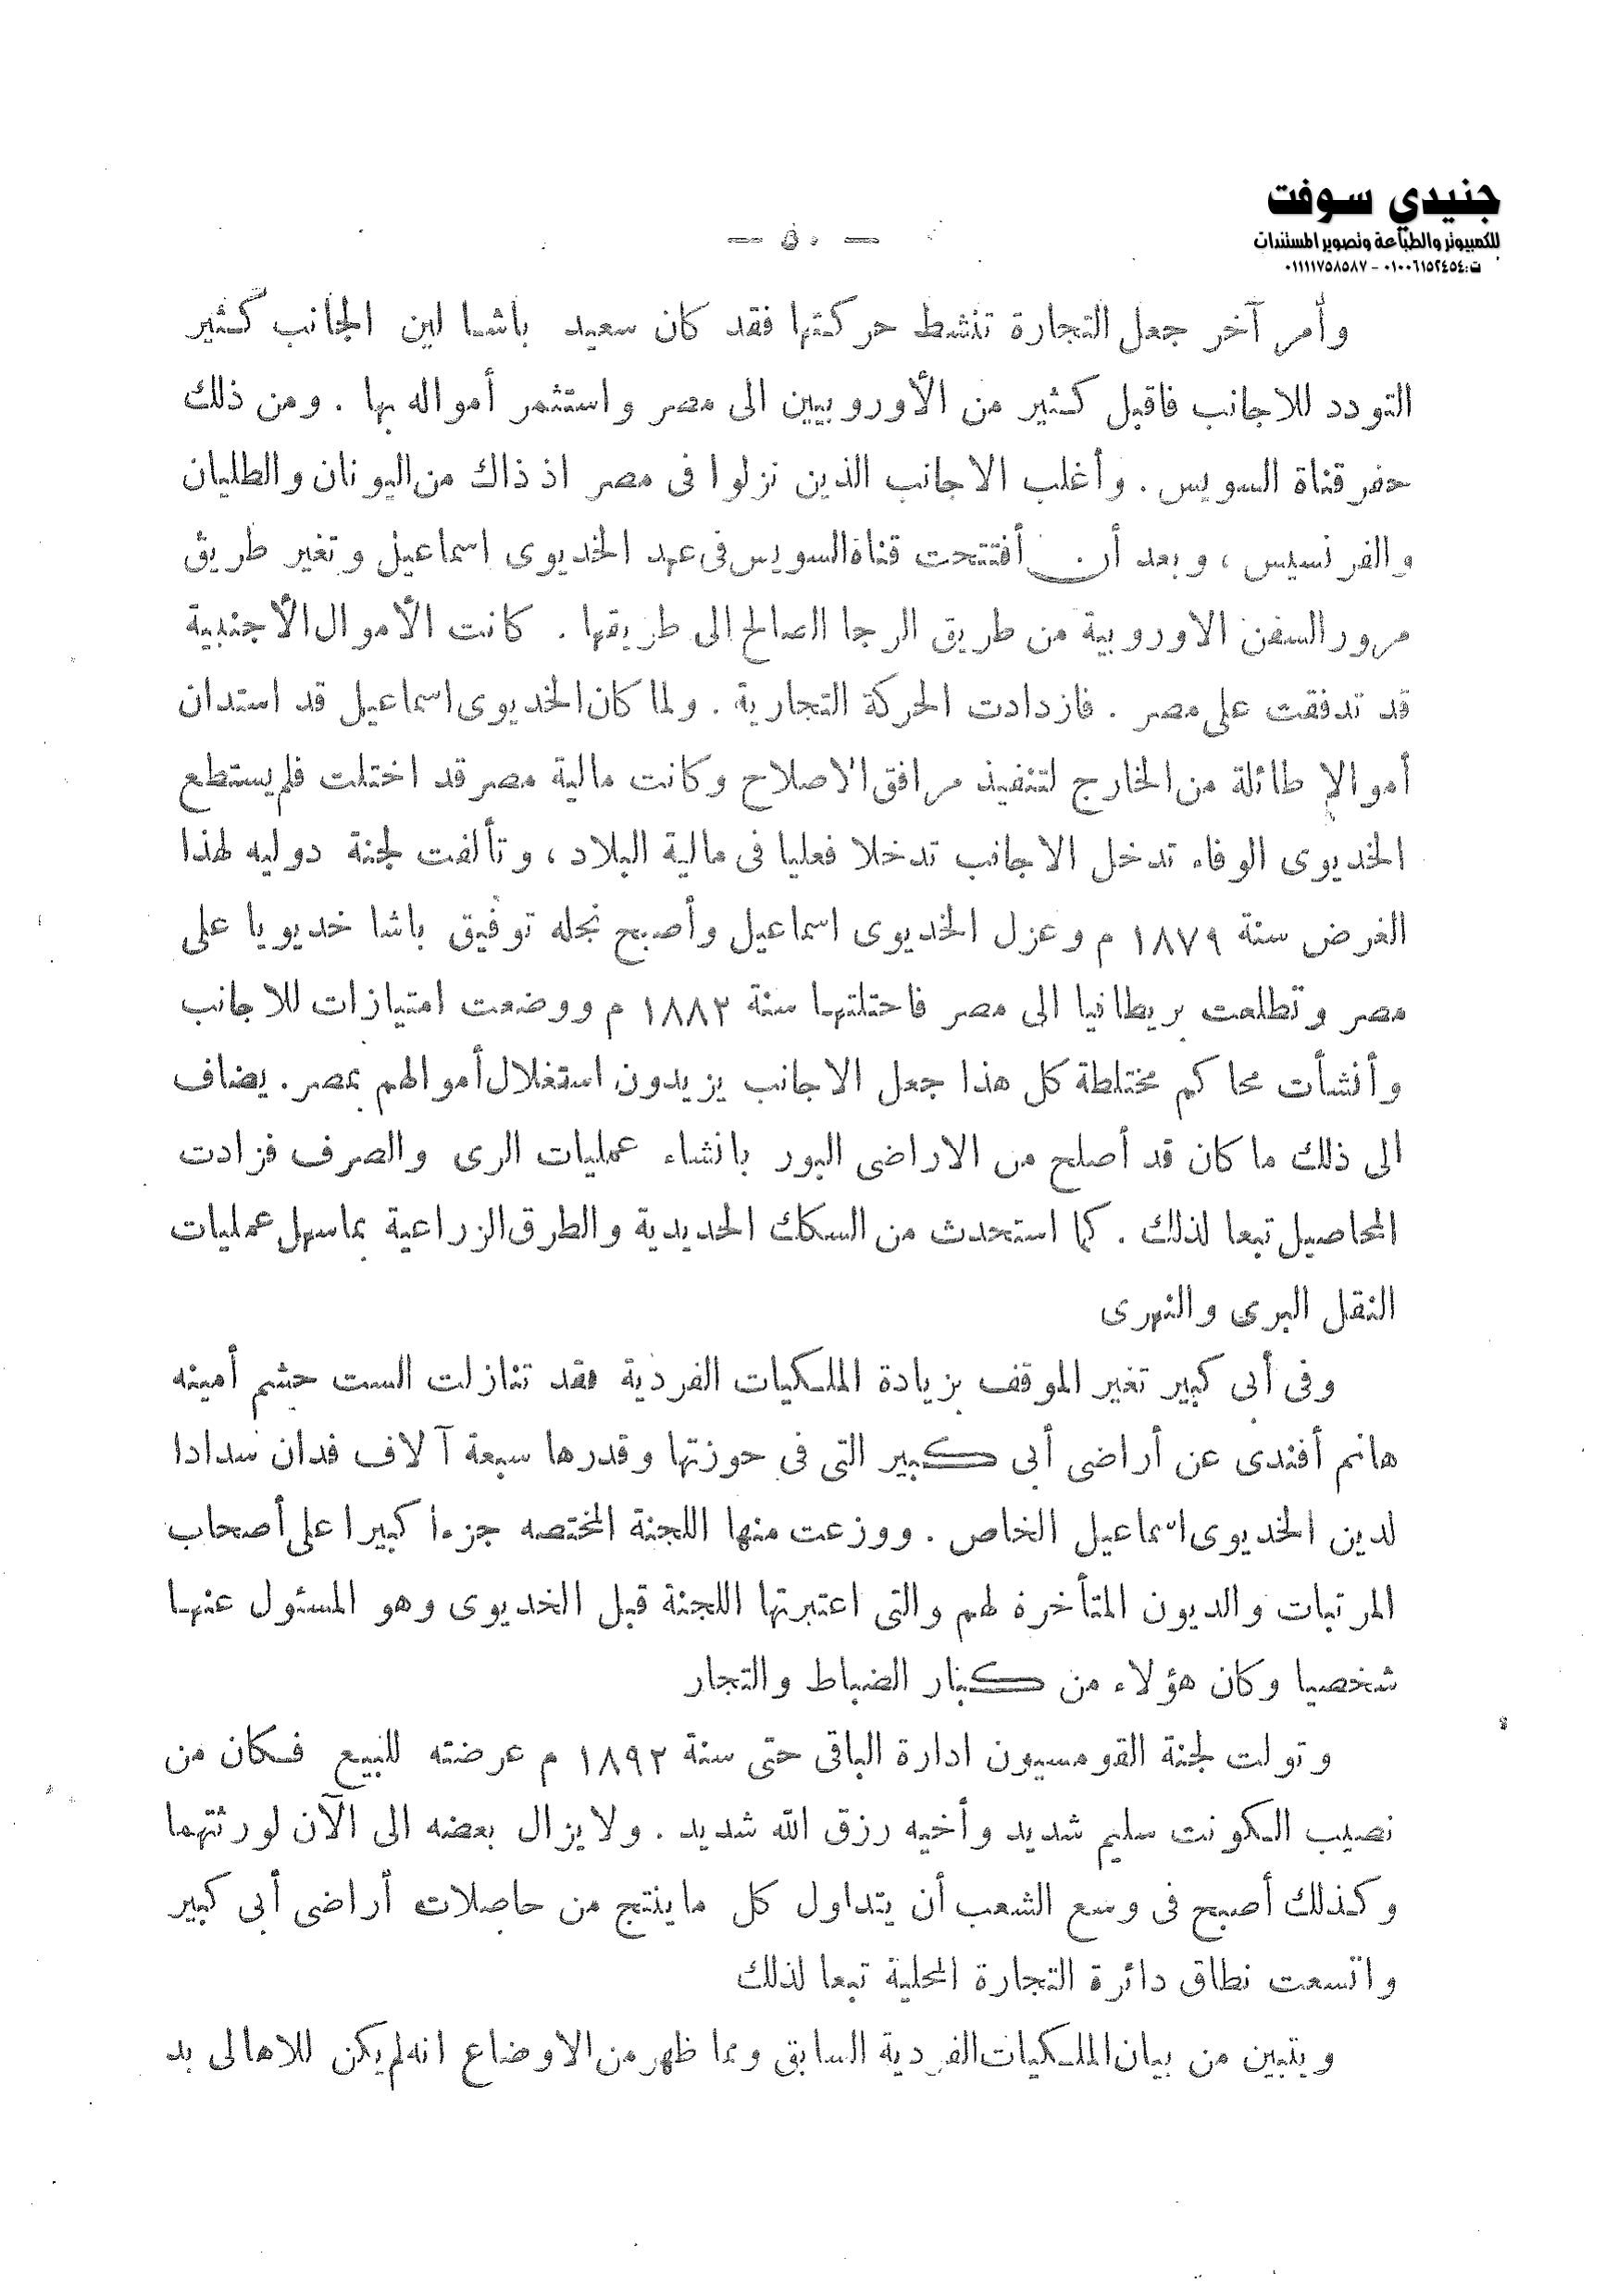 جنيدي سوفت
للكمبيوتر والطباعة وتصوير المستندات
ت:٠١٠٠٦١٥٢٤٥٤ - ٠١١١١٧٥٨٥٨٧
وأمر آخر جعل التجارة تنشط حركتها فقد كان سعيد باشا لين الجانب كثير
التودد للاجانب فاقبل كثير من الأوروبيين الى مصر واستثمر أمواله بها . ومن ذلك
حفر قناة السويس . وأغلب الاجانب الذين نزلوا فى مصر اذ ذاك من اليونان والطليان
والفرنسيس ، وبعد أن أفتتحت قناة السويس فى عهد الخديوى اسماعيل وتغير طريق
مرور السفن الاوروبية من طريق الرجا الصالح إلى طريقها . كانت الأموال الأجنبية
قد تدفقت على مصر . فازدادت الحركة التجارية . ولما كان الخديوى اسماعيل قد استدان
أموالا طائلة من الخارج لتنفيذ مرافق الاصلاح وكانت مالية مصر قد اختلت فلم يستطع
الخديوى الوفاء تدخل الاجانب تدخلا فعليا فى مالية البلاد ، وتألفت لجنة دوليه لهذا
الغرض سنة ١٨٧٩ م وعزل الخديوى اسماعيل وأصبح نجله توفيق باشا خديويا على
مصر وتطلعت بريطانيا الى مصر فاحتلتها سنة ١٨٨٢ م ووضعت امتيازات للاجانب
وأنشأت محاكم مختلطة كل هذا جعل الاجانب يزيدون استغلال أموالهم بمصر . يضاف
الى ذلك ما كان قد أصلح من الاراضى البور بانشاء عمليات الرى والصرف فزادت
المحاصيل تبعا لذلك . كما استحدث من السكك الحديدية والطرق الزراعية بما سهل عمليات
النقل البرى والنهرى
وفى أبى كبير تغير الموقف بزيادة الملكيات الفردية فقد تنازلت الست حشم أمينه
هانم أفندى عن أراضى أبى كبير التى فى حوزتها وقدرها سبعة آلاف فدان سدادا
لدين الخديوى اسماعيل الخاص . ووزعت منها اللجنة المختصه جزءا كبيرا على أصحاب
المرتبات والديون المتأخرة لهم والتى اعتبرتها اللجنة قبل الخديوى وهو المسئول عنها
شخصيا وكان هؤلاء من كبار الضباط والتجار
وتولت لجنة القومسيون ادارة الباقى حتى سنة ١٨٩٢ م عرضته للبيع فكان من
نصيب الكونت سليم شديد وأخيه رزق الله شديد . ولا يزال بعضه الى الآن لورثتهما
وكذلك أصبح فى وسع الشعب أن يتداول كل ما ينتج من حاصلات أراضى أبى كبير
واتسعت نطاق دائرة التجارة المحلية تبعا لذلك
ويتبين من بيان الملكيات الفردية السابق ومما ظهر من الاوضاع انه لم يكن للاهالى بد